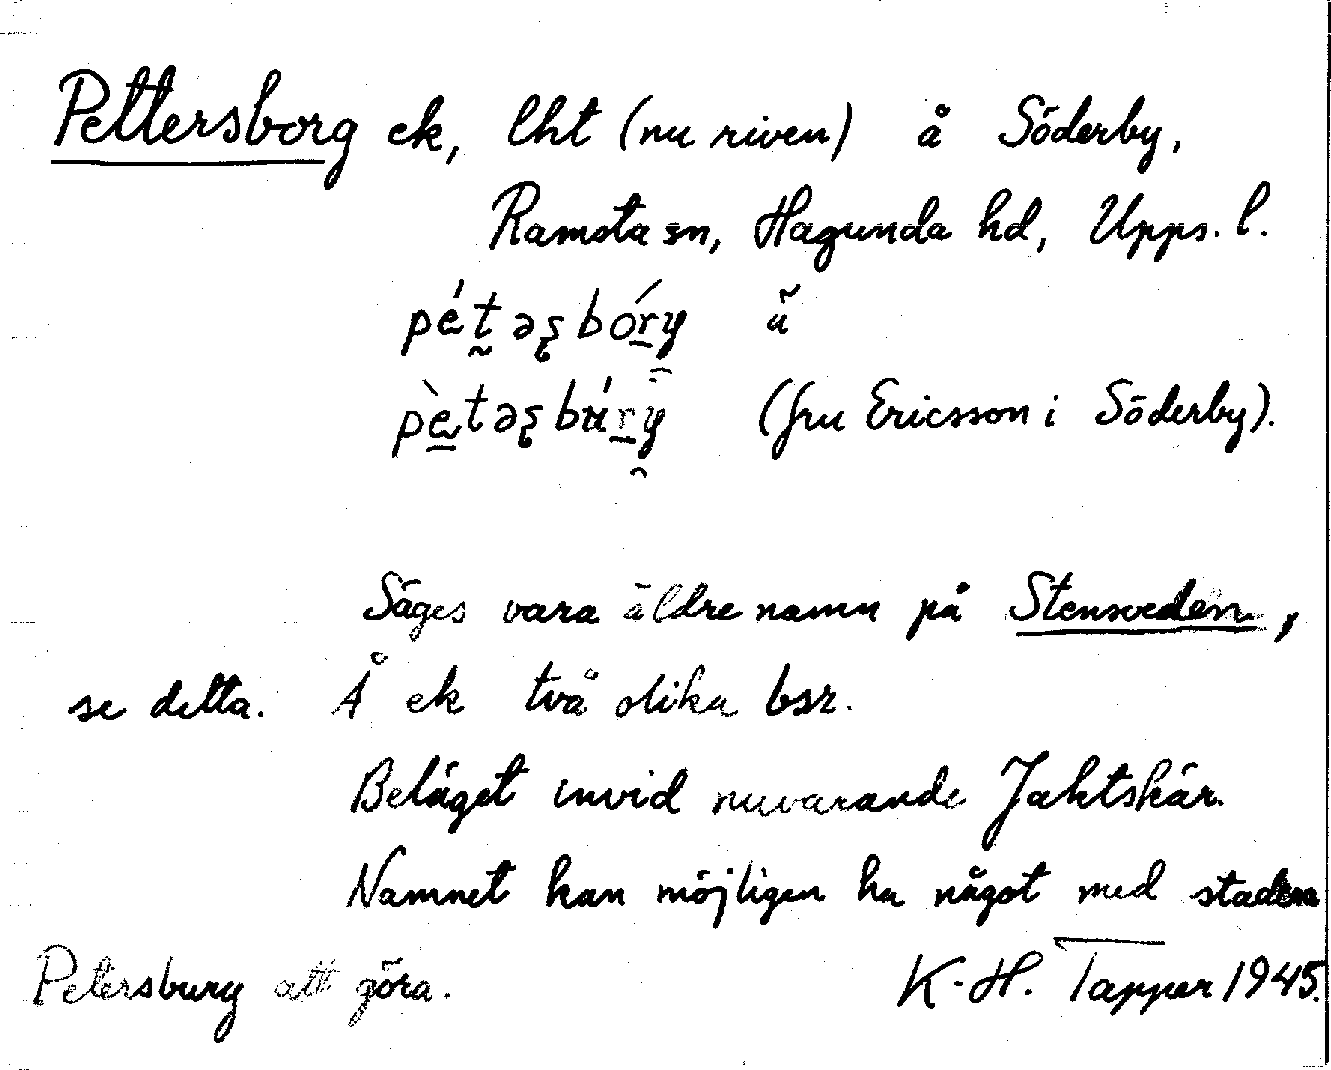 Pettersborg ek, lht (nu riven) å Söderby,
Ramsta sn, Hagunda hd, Upps. l.
(fru Ericsson i Söderby).
Säges vara äldre namn på Stensveden,
se detta. Å ek två olika bsr.
Beläget invid nuvarande Jaktskär.
Namnet kan möjligen ha något med staden
Petersburg att göra. K-H. Tapper 1945.